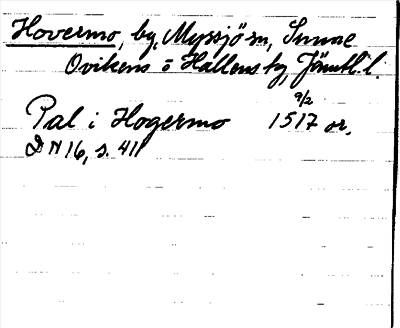 Hovermo, by, Myssjö sn, Sunne
Ovikens o Hallens tg, Jämtl. l
Pal i Hogermo 1517 9/2 or.
DN 16, s. 411